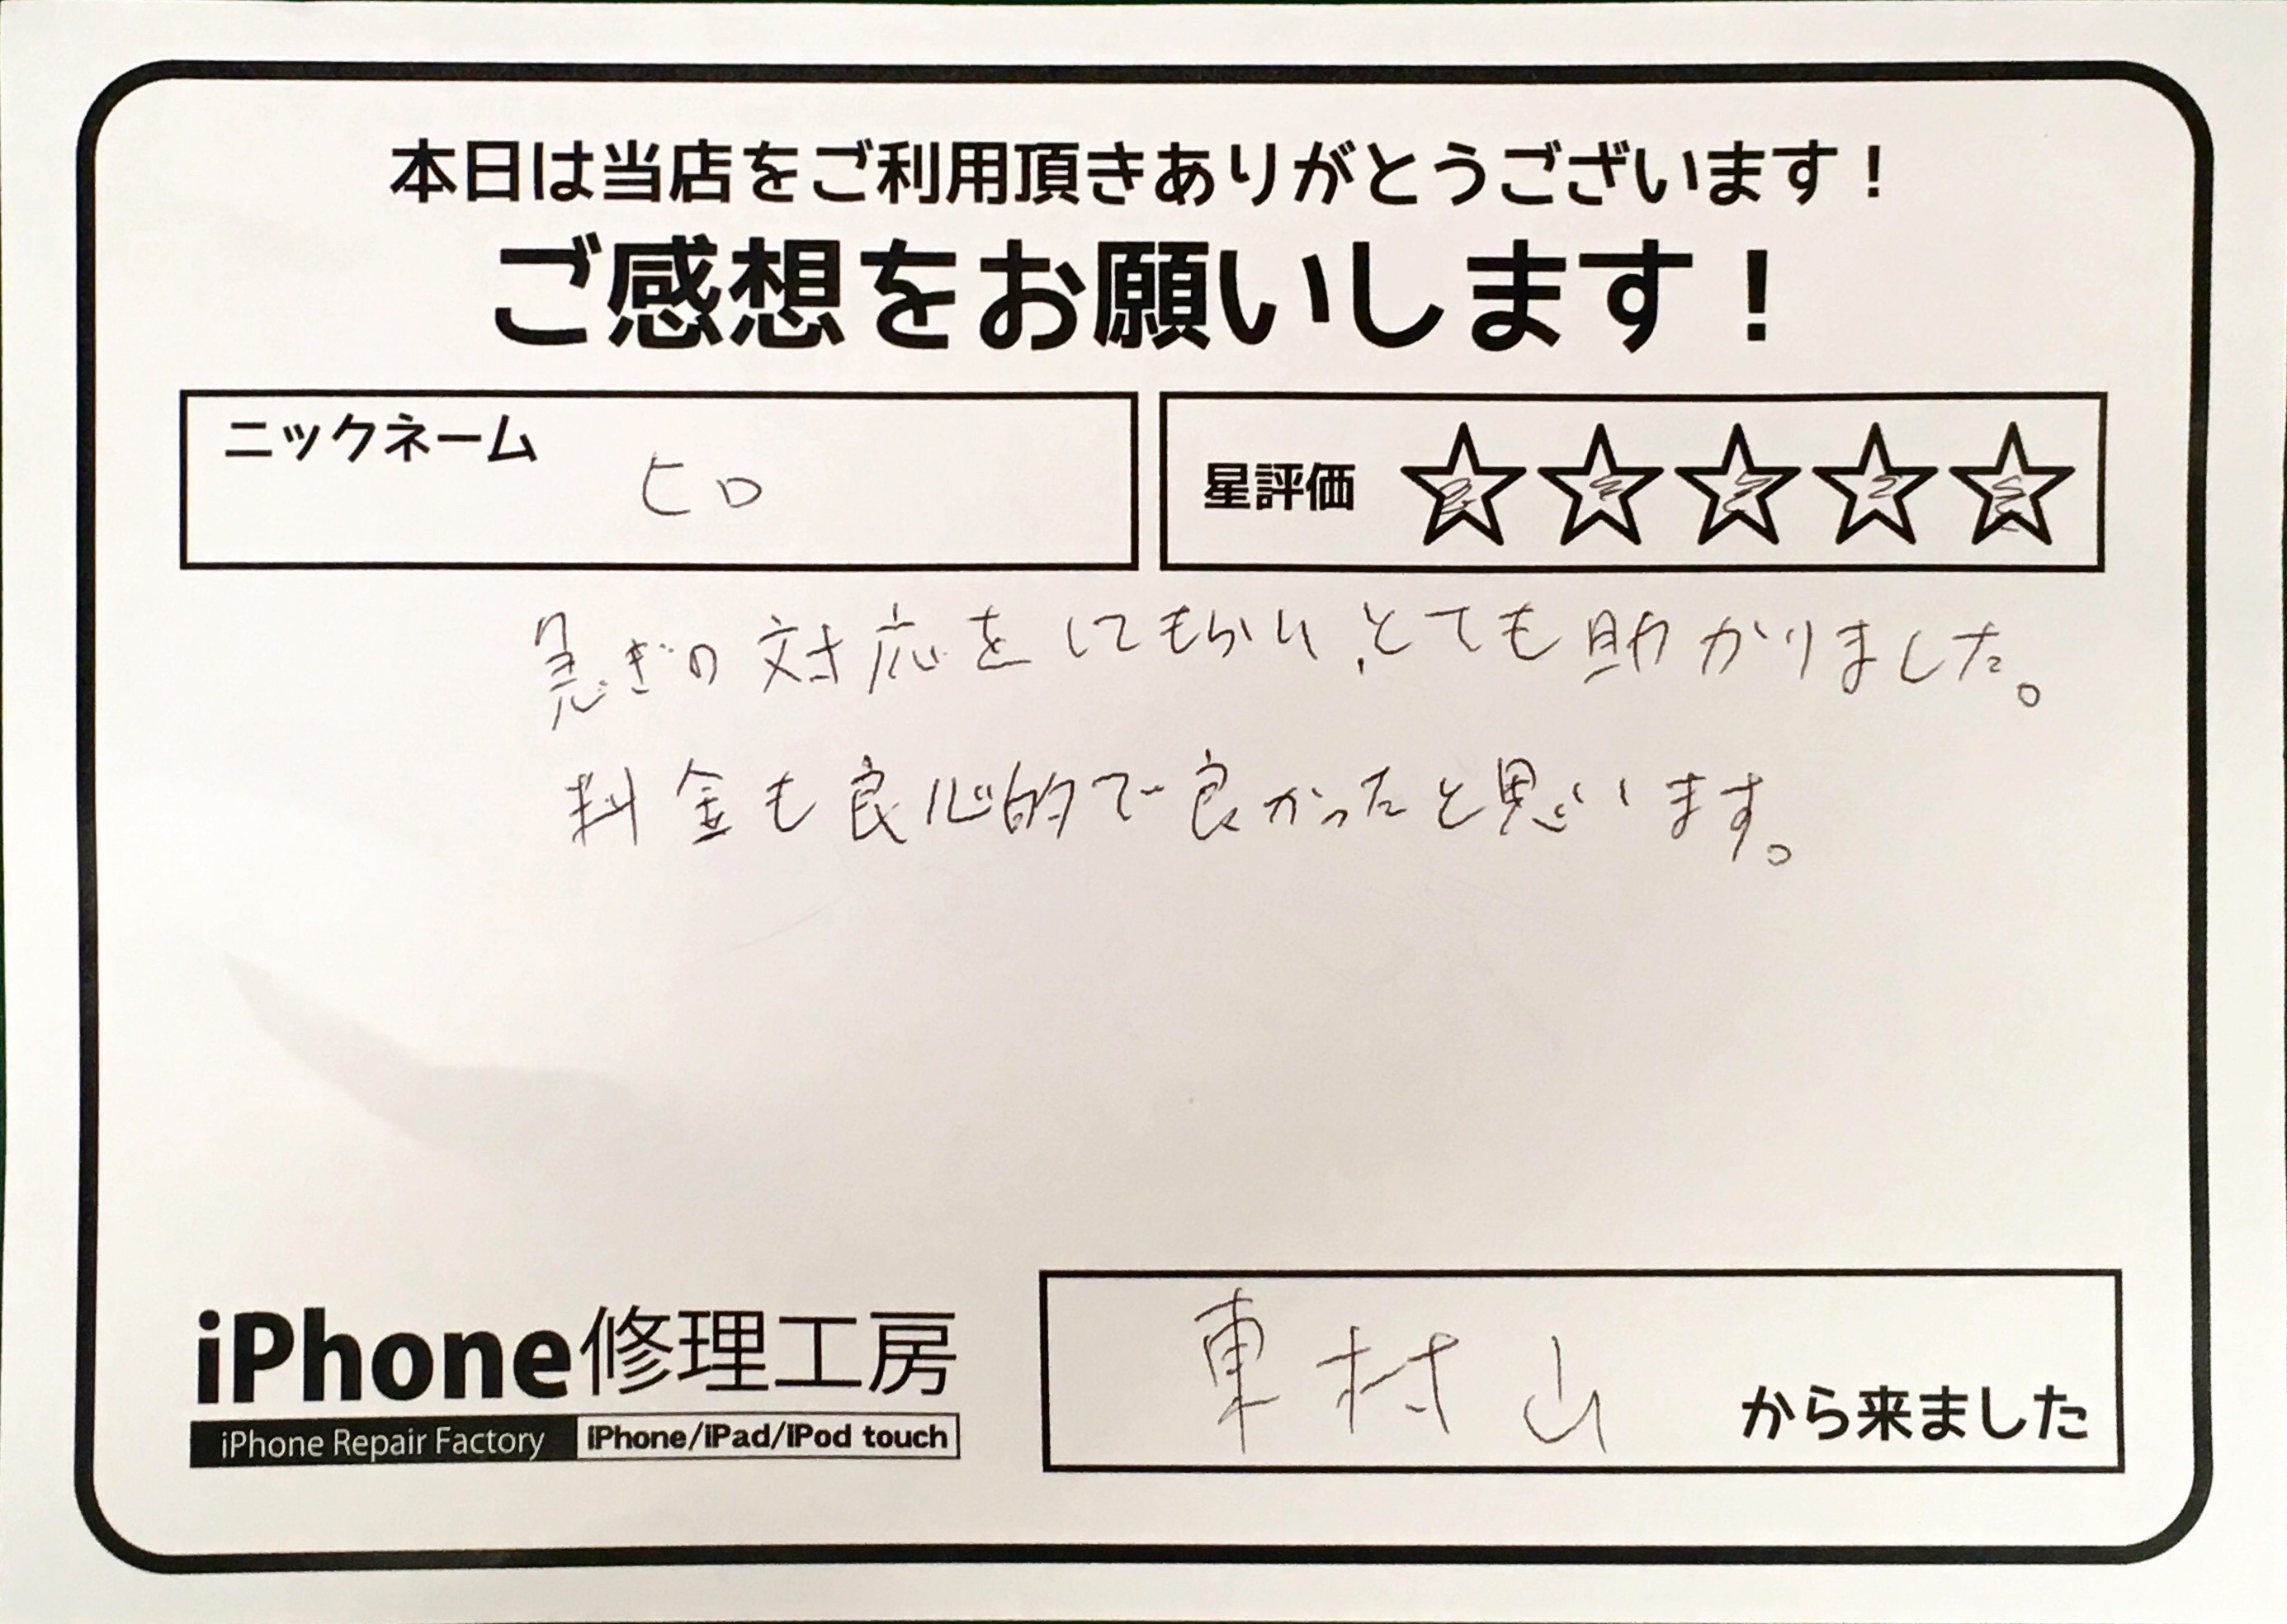 本日は当店をご利用頂きありがとうございます！
ご感想をお願いします！
ニックネーム ヒロ
星評価 ☆☆☆☆☆
急ぎの対応をしてもらい、とても助かりました。
料金も良心的で良かったと思います。
iPhone修理工房
iPhone Repair Factory iPhone/iPad/iPod touch
東村山 から来ました